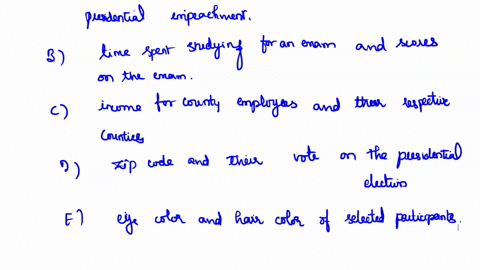 presidential impeachment.
B) time spent studying for an exam and scores
on the exam.
C) income for county employees and their respective
counties
D) zip code and their vote on the presidential
election
E) eye color and hair color of selected participants.